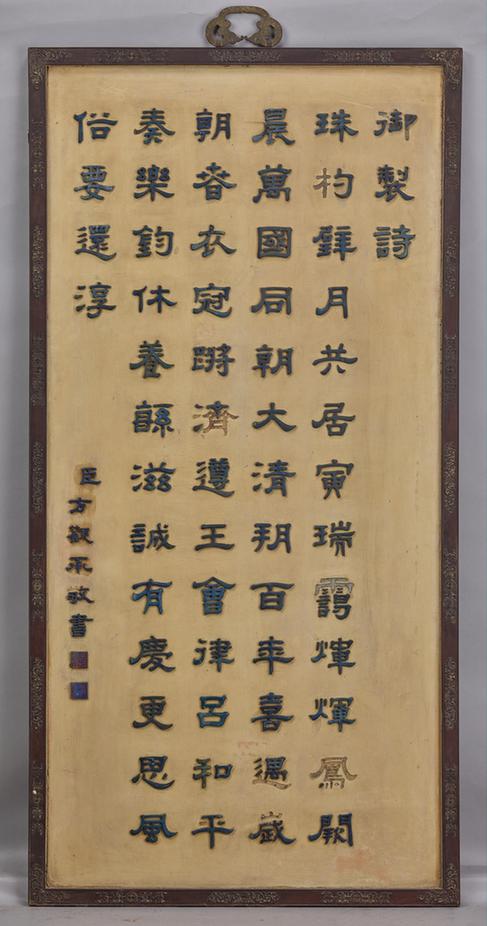 御製詩
珠杓璧月共居寅瑞靄煇煇鳳闕
晨萬國同朝大清朔百年喜遇歲
朝春衣冠蹡濟遵王會律呂和平
奏樂鈞休養緜滋誠有慶更思風
俗要還淳
臣方觀承敬書